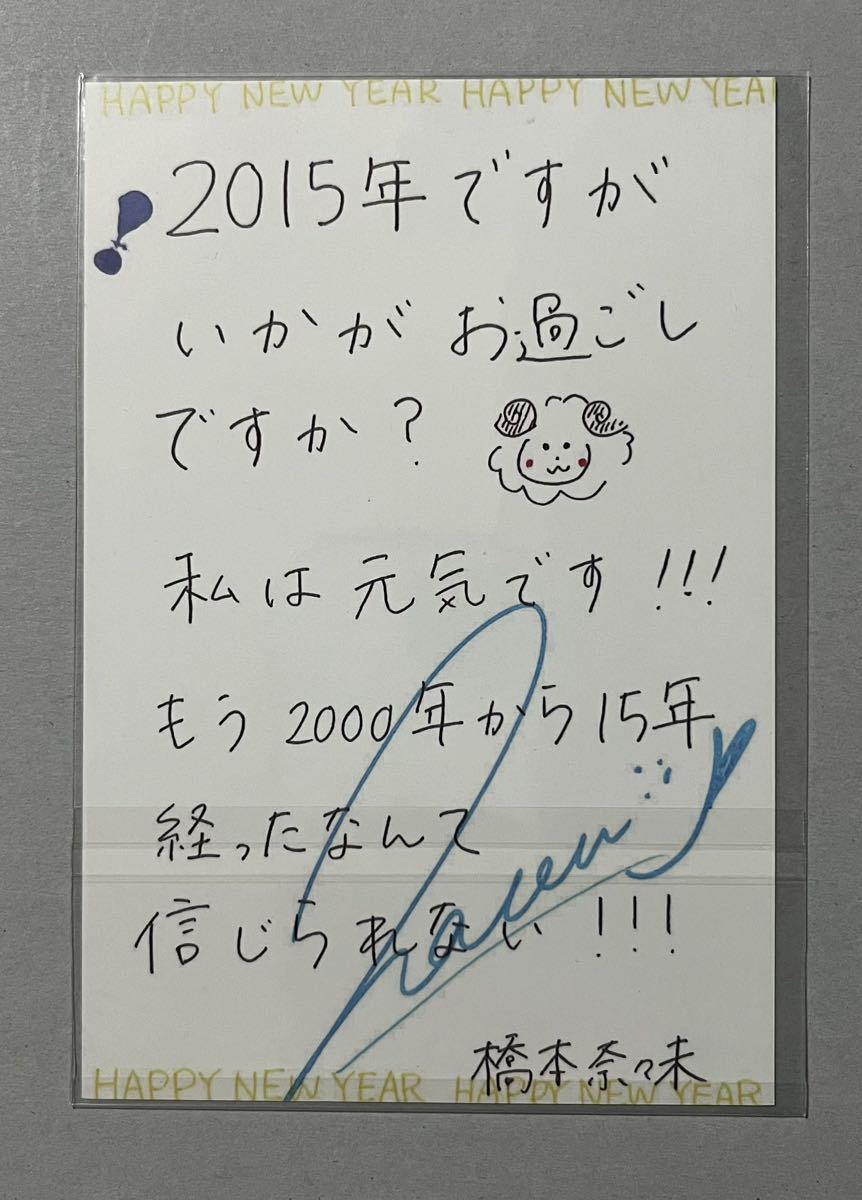 HAPPY NEW YEAR HAPPY NEW YEA
2015年ですが
いかがお過ごし
ですか?
私は元気です!!!
もう2000年から15年
経ったなんて
信じられない!!!
橋本奈々未
HAPPY NEW YEAR HAPPY NEW YEAR